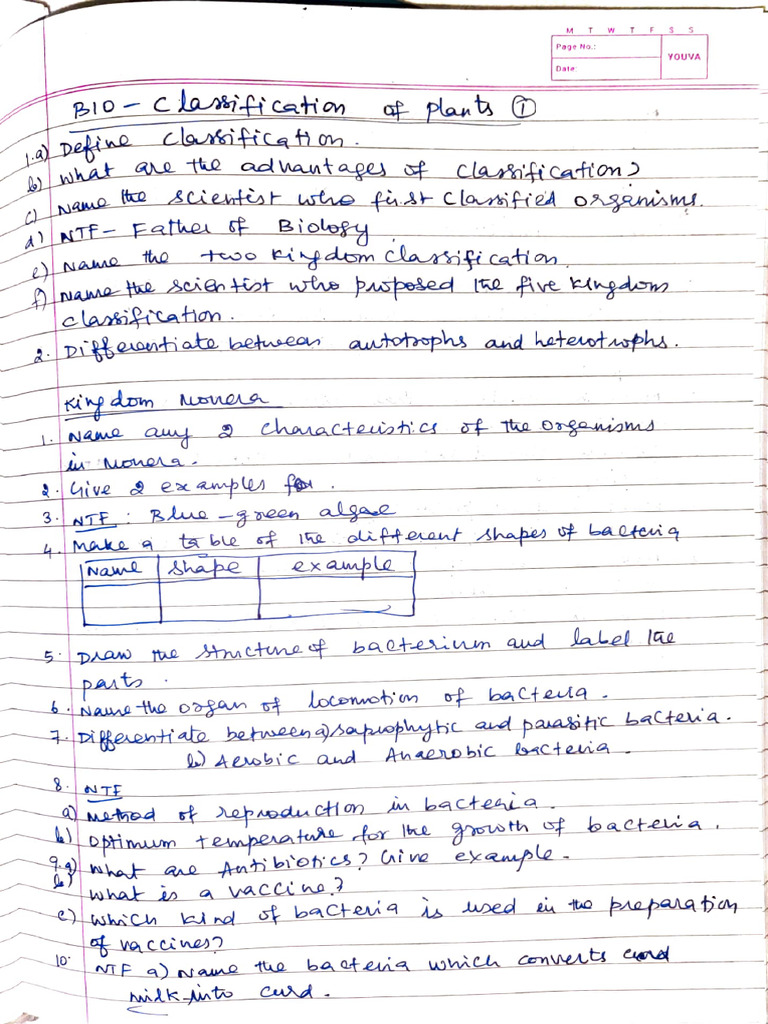 M T W T F S S
Page No.:
YOUVA
Date:
BIO - Classification of plants ①
1.a) Define classification.
b) What are the advantages of classification?
c) Name the scientist who first classified organisms.
d) NTF - Father of Biology
e) Name the two kingdom classification
f) Name the scientist who proposed the five kingdom
classification.
2. Differentiate between autotrophs and heterotrophs.
Kingdom Monera
1. Name any 2 characteristics of the organisms
in Monera.
2. Give 2 examples for.
3. NTF: Blue-green algae
4. Make a table of the different shapes of bacteria
Name shape example
5. Draw the structure of bacterium and label the
parts.
6. Name the organ of locomotion of bacteria.
7. Differentiate between a) saprophytic and parasitic bacteria.
b) Aerobic and Anaerobic bacteria.
8. NTF
a) Method of reproduction in bacteria.
b) Optimum temperature for the growth of bacteria.
9.a) What are Antibiotics? Give example.
b) What is a vaccine?
c) Which kind of bacteria is used in the preparation
of vaccines?
10. NTF a) Name the bacteria which converts
milk into curd.